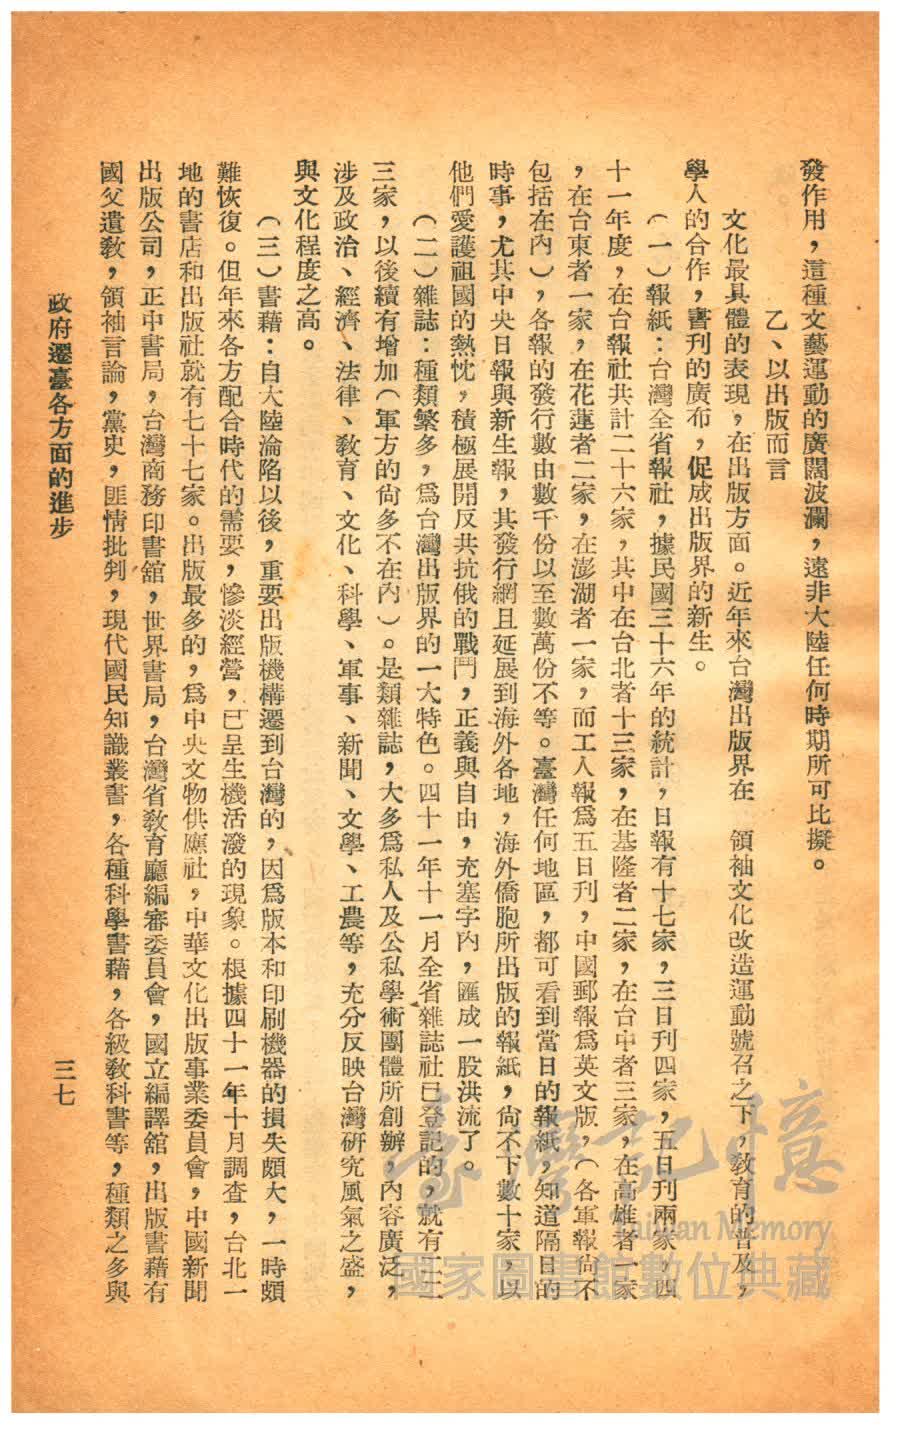 發作用，這種文藝運動的廣闊波瀾，遠非大陸任何時期所可比擬。
乙、以出版而言
文化最具體的表現，在出版方面。近年來台灣出版界在　領袖文化改造運動號召之下，教育的普及，
學人的合作，書刊的廣布，促成出版界的新生。
（一）報紙：台灣全省報社，據民國三十六年的統計，日報有十七家，三日刊四家，五日刊兩家，四
十一年度，在台報社共計二十六家，其中在台北者十三家，在基隆者二家，在台中者三家，在高雄者一家
，在台東者一家，在花蓮者二家，在澎湖者一家，而工人報爲五日刊，中國郵報爲英文版，（各軍報尙不
包括在內），各報的發行數由數千份以至數萬份不等。臺灣任何地區，都可看到當日的報紙，知道隔日的
時事，尤其中央日報與新生報，其發行網且延展到海外各地，海外僑胞所出版的報紙，尙不下數十家，以
他們愛護祖國的熱忱，積極展開反共抗俄的戰鬥，正義與自由，充塞字內，匯成一股洪流了。
（二）雜誌：種類繁多，爲台灣出版界的一大特色。四十一年十一月全省雜誌社已登記的，就有二二
三家，以後續有增加（軍方的尙多不在內）。是類雜誌，大多爲私人及公私學術團體所創辦，內容廣泛，
涉及政治、經濟、法律、敎育、文化、科學、軍事、新聞、文學、工農等，充分反映台灣研究風氣之盛，
與文化程度之高。
（三）書藉：自大陸淪陷以後，重要出版機構遷到台灣的，因爲版本和印刷機器的損失頗大，一時頗
難恢復。但年來各方配合時代的需要，慘淡經營，已呈生機活潑的現象。根據四十一年十月調查，台北一
地的書店和出版社就有七十七家。出版最多的，爲中央文物供應社，中華文化出版事業委員會，中國新聞
出版公司，正中書局，台灣商務印書舘，世界書局，台灣省敎育廳編審委員會，國立編譯舘，出版書藉有
國父遺敎，領袖言論，黨史，匪情批判，現代國民知識叢書，各種科學書藉，各級敎科書等，種類之多與
政府遷臺各方面的進步
三七
臺灣記憶
Taiwan Memory
國家圖書館數位典藏